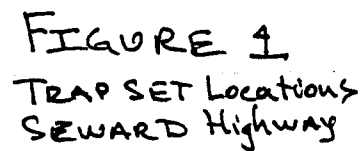 FIGURE 1
TRAP SET Locations
SEWARD Highway